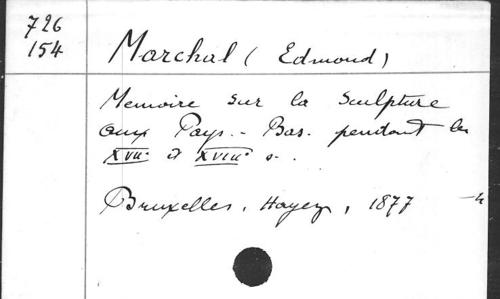 726
154
Marchal ( Edmond )
Memoire sur la Sculpture
aux Pays-Bas. pendant les
XVIIe et XVIIIe s.
Bruxelles, Hayez, 1877